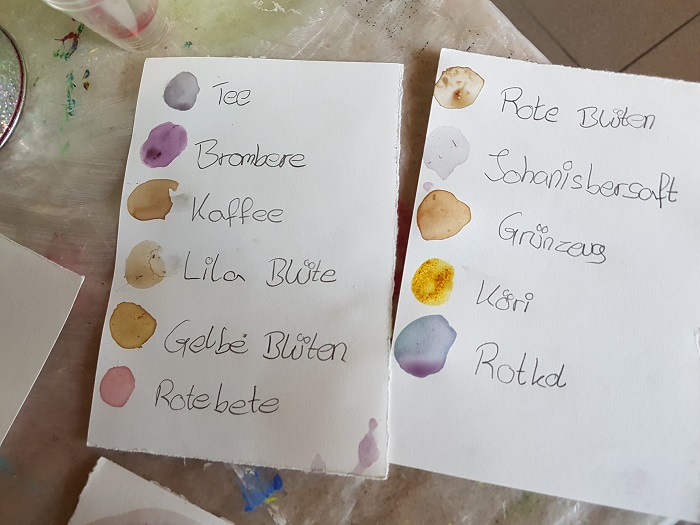 Tee
Brombere
Kaffee
Lila Blüte
Gelbe Blüten
Rotebete
Rote Blüten
Johanisbersaft
Grünzeug
Köri
Rotkol